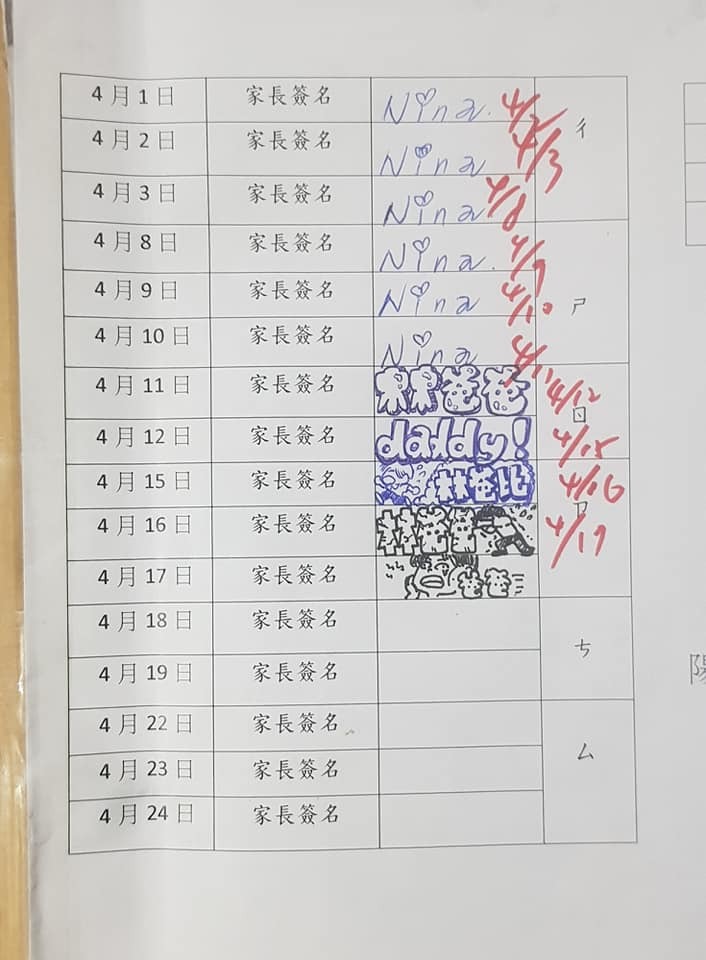 4月1日 家長簽名 Nina. 4/2
4月2日 家長簽名 Nina 4/3 ㄔ
4月3日 家長簽名 Nina 4/8
4月8日 家長簽名 Nina. 4/9
4月9日 家長簽名 Nina 4/10 ㄕ
4月10日 家長簽名 Nina 4/11
4月11日 家長簽名 林爸爸 4/12
4月12日 家長簽名 daddy! 4/15 ㄖ
4月15日 家長簽名 林爸比 4/16
4月16日 家長簽名 4/17 ㄗ
4月17日 家長簽名 爸爸
4月18日 家長簽名
4月19日 家長簽名 ㄘ
4月22日 家長簽名
4月23日 家長簽名 ㄙ
4月24日 家長簽名